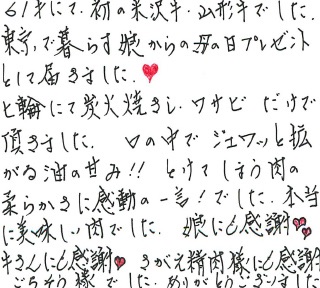 61才にて、初の米沢牛・山形牛でした。
東京で暮らす娘からの母の日プレゼント
として届きました。❤
七輪にて炭火焼きし、ワサビだけで
頂きました。口の中でジュワッと拡
がる油の甘み!!とけてしまう肉の
柔らかさに感動の一言!でした。本当
に美味しい肉でした。娘にも感謝❤❤
牛さんにも感謝❤さがえ精肉様にも感謝
ごちそう様でした。ありがとうございました